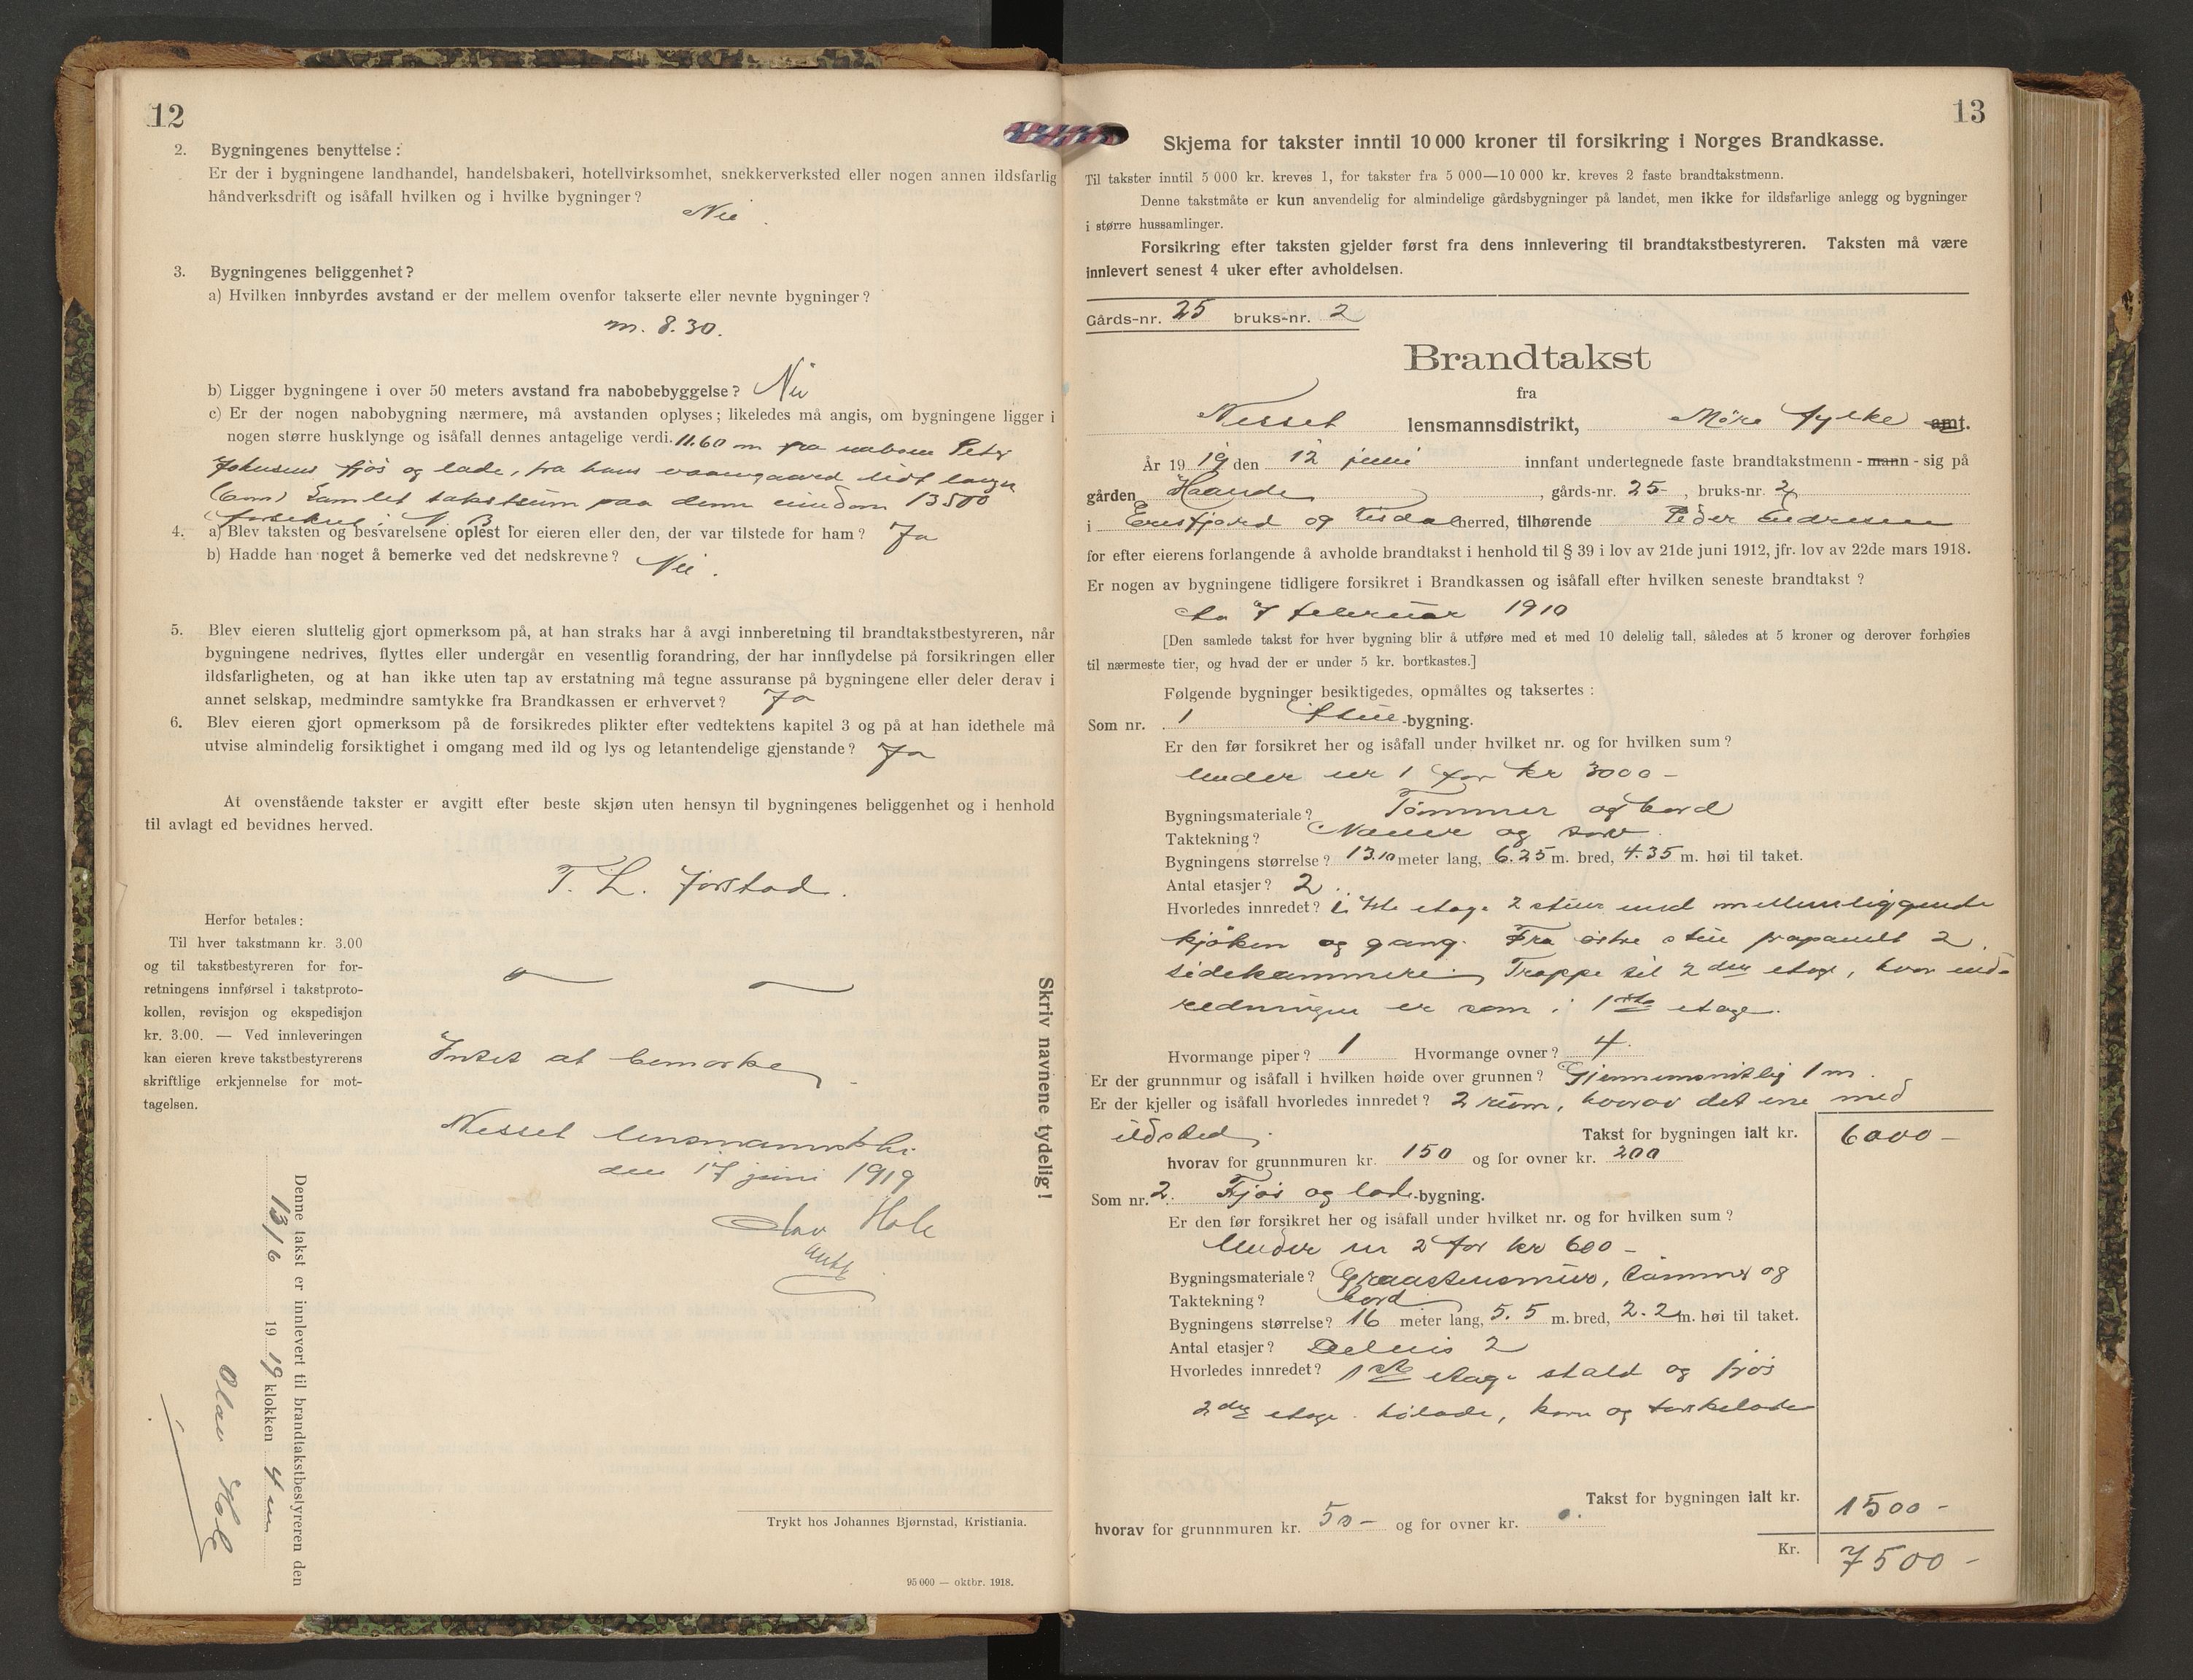 12
2. Bygningenes benyttelse:
Er der i bygningene landhandel, handelsbakeri, hotellvirksomhet, snekkerverksted eller nogen annen ildsfarlig
håndverksdrift og isåfall hvilken og i hvilke bygninger?
Nei.
3. Bygningenes beliggenhet?
a) Hvilken innbyrdes avstand er der mellem ovenfor takserte eller nevnte bygninger?
m. 8.30.
b) Ligger bygningene i over 50 meters avstand fra nabobebyggelse? Nei
c) Er der nogen nabobygning nærmere, må avstanden oplyses; likeledes må angis, om bygningene ligger i
nogen større husklynge og isåfall dennes antagelige verdi. 11.60 m fra naboen Peter
Johnsens fjøs og lade, fra hans vaaningaard lidt længer
Samlet takstsum paa denne eiendom 13500
forsikret i N. B.
4. a) Blev taksten og besvarelsene oplest for eieren eller den, der var tilstede for ham? Ja
b) Hadde han noget å bemerke ved det nedskrevne? Nei.
5. Blev eieren sluttelig gjort opmerksom på, at han straks har å avgi innberetning til brandtakstbestyreren, når
bygningene nedrives, flyttes eller undergår en vesentlig forandring, der har innflydelse på forsikringen eller
ildsfarligheten, og at han ikke uten tap av erstatning må tegne assuranse på bygningene eller deler derav i
annet selskap, medmindre samtykke fra Brandkassen er erhvervet? Ja
6. Blev eieren gjort opmerksom på de forsikredes plikter efter vedtektens kapitel 3 og på at han idethele må
utvise almindelig forsiktighet i omgang med ild og lys og letantendelige gjenstande? Ja
At ovenstående takster er avgitt efter beste skjøn uten hensyn til bygningenes beliggenhet og i henhold
til avlagt ed bevidnes herved.
T. L. Jørstad.
Herfor betales:
Til hver takstmann kr. 3.00
og til takstbestyreren for for-
retningens innførsel i takstproto-
kollen, revisjon og ekspedisjon
kr. 3.00. — Ved innleveringen
kan eieren kreve takstbestyrerens
skriftlige erkjennelse for mot-
tagelsen.
Intet at bemerke.
Nesset lensmannsbk.
den 17 juni 1919
Olav Hole
Skriv navnene tydelig!
Denne takst er innlevert til brandtakstbestyreren den
13/6 1919 klokken 4 em
Olav Hole
Trykt hos Johannes Bjørnstad, Kristiania.
95 000 — oktbr. 1918.
13
Skjema for takster inntil 10 000 kroner til forsikring i Norges Brandkasse.
Til takster inntil 5 000 kr. kreves 1, for takster fra 5 000—10 000 kr. kreves 2 faste brandtakstmenn.
Denne takstmåte er kun anvendelig for almindelige gårdsbygninger på landet, men ikke for ildsfarlige anlegg og bygninger
i større hussamlinger.
Forsikring efter taksten gjelder først fra dens innlevering til brandtakstbestyreren. Taksten må være
innlevert senest 4 uker efter avholdelsen.
Gårds-nr. 25 bruks-nr. 2
Brandtakst
fra
Nesset lensmannsdistrikt, Møre fylke amt.
År 1919 den 12 juni innfant undertegnede faste brandtakstmenn - mann - sig på
gården Haande, gårds-nr. 25, bruks-nr. 2
i Eresfjord og Vistdal herred, tilhørende Peder Endresen
for efter eierens forlangende å avholde brandtakst i henhold til § 39 i lov av 21de juni 1912, jfr. lov av 22de mars 1918.
Er nogen av bygningene tidligere forsikret i Brandkassen og isåfall efter hvilken seneste brandtakst?
Ja 7 februar 1910
[Den samlede takst for hver bygning blir å utføre med et med 10 delelig tall, således at 5 kroner og derover forhøies
til nærmeste tier, og hvad der er under 5 kr. bortkastes.]
Følgende bygninger besiktigedes, opmåltes og taksertes:
Som nr. 1 Stue-bygning.
Er den før forsikret her og isåfall under hvilket nr. og for hvilken sum?
Under nr 1 for kr 3000 -
Bygningsmateriale? Tømmer og bord
Taktekning? Næver og torv
Bygningens størrelse? 13.10 meter lang, 6.25 m. bred, 4.35 m. høi til taket.
Antal etasjer? 2.
Hvorledes innredet? i 1ste etage 2 stuer med mellemliggende
kjøken og gang. Fra østre stue frapanelt 2
sidekammere, Trappe til 2den etage, hvor ind-
redningen er som i 1ste etage.
Hvormange piper? 1 Hvormange ovner? 4.
Er der grunnmur og isåfall i hvilken høide over grunnen? Gjennemsnitlig 1 m.
Er der kjeller og isåfall hvorledes innredet? 2 rum, hvorav det ene med
ildsted. Takst for bygningen ialt kr. 6000 -
hvorav for grunnmuren kr. 150 og for ovner kr. 200
Som nr. 2. Fjøs og lade-bygning.
Er den før forsikret her og isåfall under hvilket nr. og for hvilken sum?
Under nr 2 for kr 600 -
Bygningsmateriale? Graastensmur, tømmer og
Taktekning? bord
Bygningens størrelse? 16 meter lang, 5.5 m. bred, 2.2 m. høi til taket.
Antal etasjer? Delvis 2
Hvorledes innredet? 1ste etage stald og fjøs
2den etage. høilade, korn og torskelade
Takst for bygningen ialt kr. 1500 -
hvorav for grunnmuren kr. 50 - og for ovner kr. 0.
Kr. 7500 -